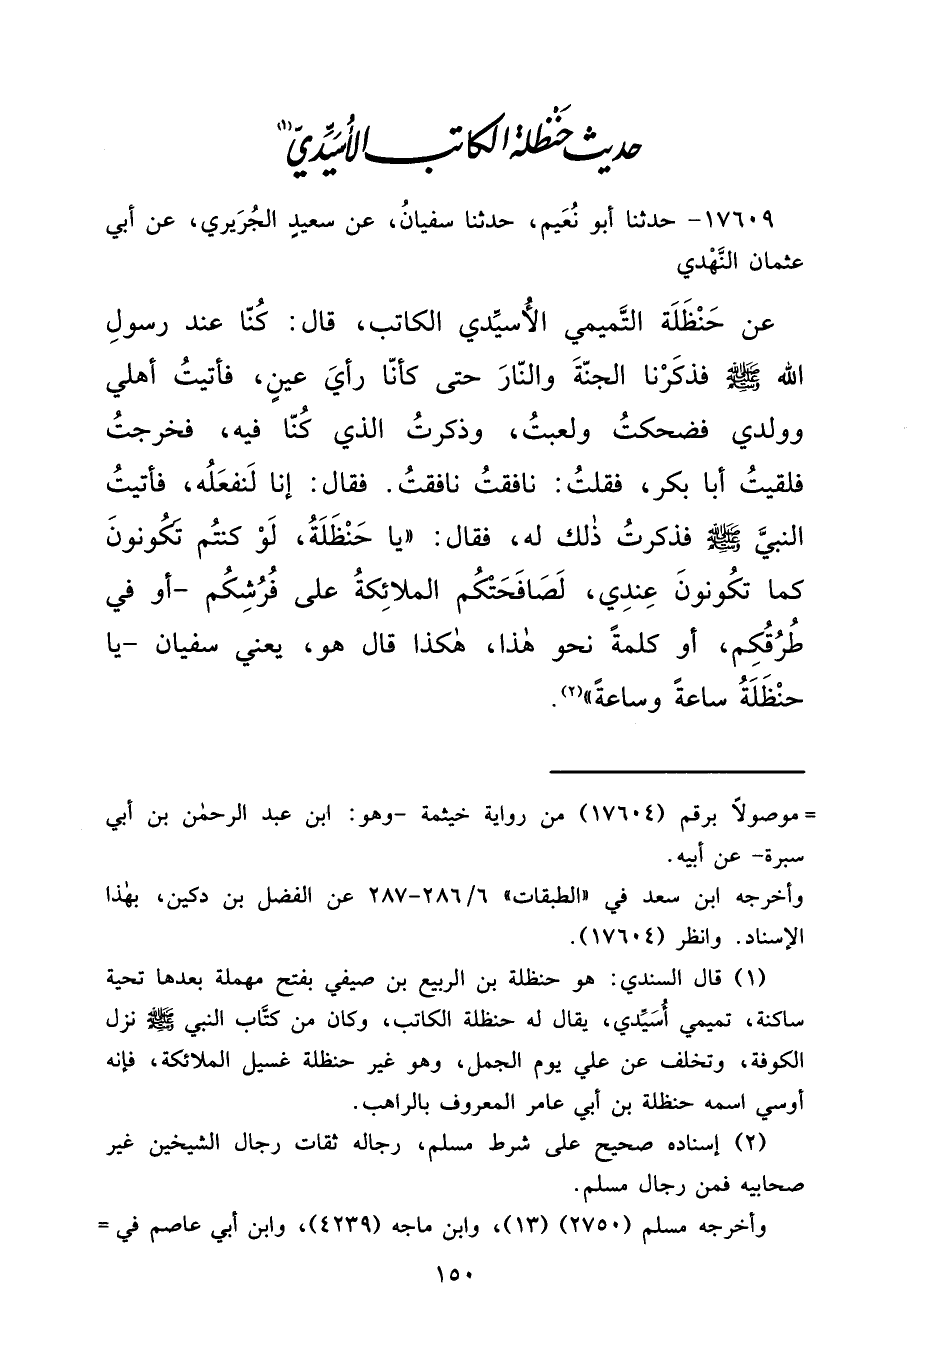 حديث حَنْظلة الكاتب الأُسَيِّديّ(١)
١٧٦٠٩- حدثنا أبو نُعَيم، حدثنا سفيانُ، عن سعيدٍ الجُرَيري، عن أبي
عثمان النَّهْدي
عن حَنْظَلَة التَّميمي الأُسيِّدي الكاتب، قال: كُنّا عند رسولِ
الله ﷺ فذكَرْنا الجنّةَ والنّارَ حتى كأنّا رأيَ عينٍ، فأتيتُ أهلي
وولدي فضحكتُ ولعبتُ، وذكرتُ الذي كُنّا فيه، فخرجتُ
فلقيتُ أبا بكر، فقلتُ: نافقتُ نافقتُ. فقال: إنا لَنفعَلُه، فأتيتُ
النبيَّ ﷺ فذكرتُ ذٰلك له، فقال: «يا حَنْظَلَةُ، لَوْ كنتُم تَكُونونَ
كما تكُونونَ عِندِي، لَصَافَحَتْكُم الملائِكةُ على فُرُشِكُم -أو في
طُرُقُكِم، أو كلمةً نحو هٰذا، هٰكذا قال هو، يعني سفيان -يا
حنْظَلَةُ ساعةً وساعةً»(٢).
= موصولاً برقم (١٧٦٠٤) من رواية خيثمة -وهو: ابن عبد الرحمٰن بن أبي
سبرة- عن أبيه.
وأخرجه ابن سعد في «الطبقات» ٦/ ٢٨٦-٢٨٧ عن الفضل بن دكين، بهٰذا
الإسناد. وانظر (١٧٦٠٤).
(١) قال السندي: هو حنظلة بن الربيع بن صيفي بفتح مهملة بعدها تحية
ساكنة، تميمي أُسَيِّدي، يقال له حنظلة الكاتب، وكان من كتَّاب النبي ﷺ نزل
الكوفة، وتخلف عن علي يوم الجمل، وهو غير حنظلة غسيل الملائكة، فإنه
أوسي اسمه حنظلة بن أبي عامر المعروف بالراهب.
(٢) إسناده صحيح على شرط مسلم، رجاله ثقات رجال الشيخين غير
صحابيه فمن رجال مسلم.
وأخرجه مسلم (٢٧٥٠) (١٣)، وابن ماجه (٤٢٣٩)، وابن أبي عاصم في =
١٥٠